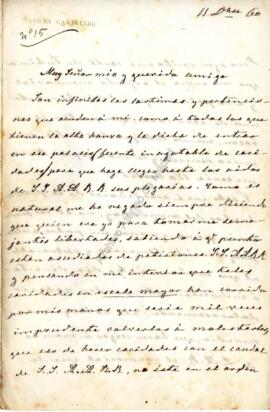 11 Dbre 60
FERNAN CABALLERO
nº 15
Muy Señor mio y querido amigo
Son infinitas las lastimas y pretensio
nes que acuden á mi como á todas las que
tienen la alta honra y la dicha de entrar
en ese palacio fuente inagotable de
cidades para que haga llegar hasta los oidos
de S.S. A.A. R.R. sus plegarias. Como es
natural me he negado siempre diciendo
que quien era yo para tomarme seme
jantes libertades, sabiendo á qe punto
están asediados de peticiones S.S. A.A. R.R.
y pensando en mi interior que tales
caridades en escala mayor han corrido
por mis manos que seria mil veces
imprudente volverlas á molestar,
que eso de hacer caridades con el caudal
de S.S. A.A. R.R. no está en el orden